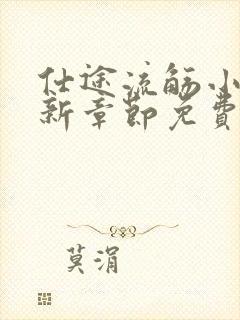 仕途流觞小
新章节免费
莫涓